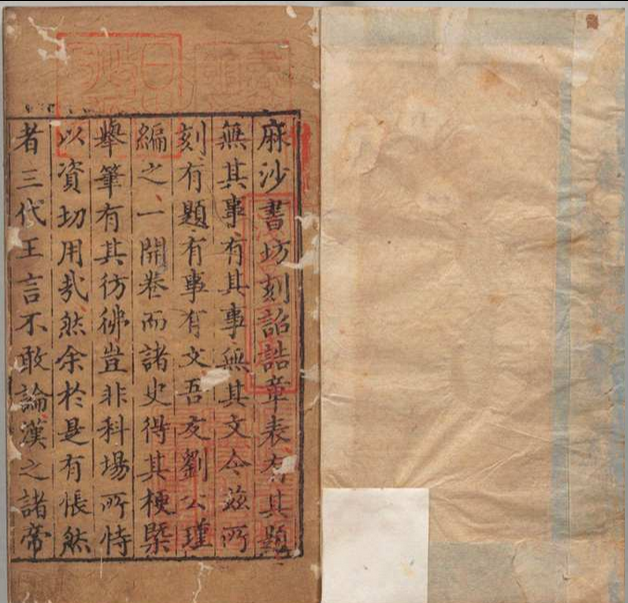 麻沙書坊刻詔誥章表有其題
無其事有其事無其文今兹所
刻有題有事有文吾友劉公瑾
編之一開卷而諸史得其梗槩
舉筆有其彷彿豈非科場所恃
以資切用㢤然余於是有悵然
者三代王言不敢論漢之諸帝